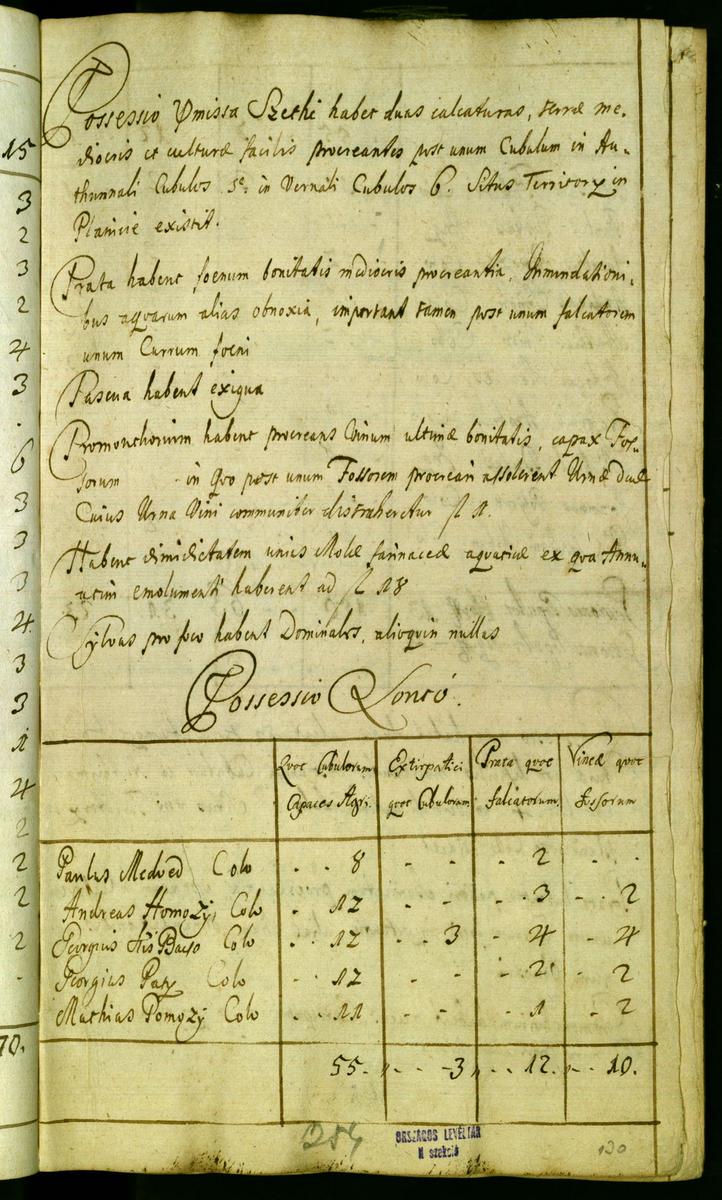 15
3
2
3
2
4
3
6
3
3
3
4
3
3
1
4
2
2
2
2
70.
Possessio Pmissa Szethi habet duas calcaturas, terræ me-
diocris et culturæ facilis procreantes post unum Cubulum in Au-
thumnali Cubulos 5. in Vernali Cubulos 6. Situs Territory in
Planicie existit.
Prata habent foenum bonitatis mediocris procreantia, Inundationi-
bus aquarum alias obnoxia, important tamen post unum falcatorem
unum Currum foeni
Pascua habent exigua
Promonthorium habent procreans Vinum ultimæ bonitatis, capax Fos-
sorum - in quo post unum Fossorem procreari assolerent Urnæ duæ
Cuius Urna Vini communiter distraheretur fl 1.
Habent dimidietatem unius Molæ farinaceæ aquaticæ ex qva Annu-
atim emolumenti haberent ad fl 18
Sylvas pro foco habent Dominales, alioquin nullas
Possessio Lontó.
Quot Cubulorum Capaces Agri. Extirpatici quot Cubulorum Prata quot falcatorum. Vineæ quot fossorum
Paulus Medved Colo - - 8 - - - 2 - -
Andreas Homozy Colo - 12 - - - 3 - 2
Georgius Kis Bacso Colo - 12 - - 3 - 4 - 4
Georgius Paty Colo - 12 - - - 2 - 2
Mathias Pomozy Colo - - 11 - - - 1 - 2
55. - - 3 - - 12. - - 10.
254
ORSZÁGOS LEVÉLTÁR
N szekció
130